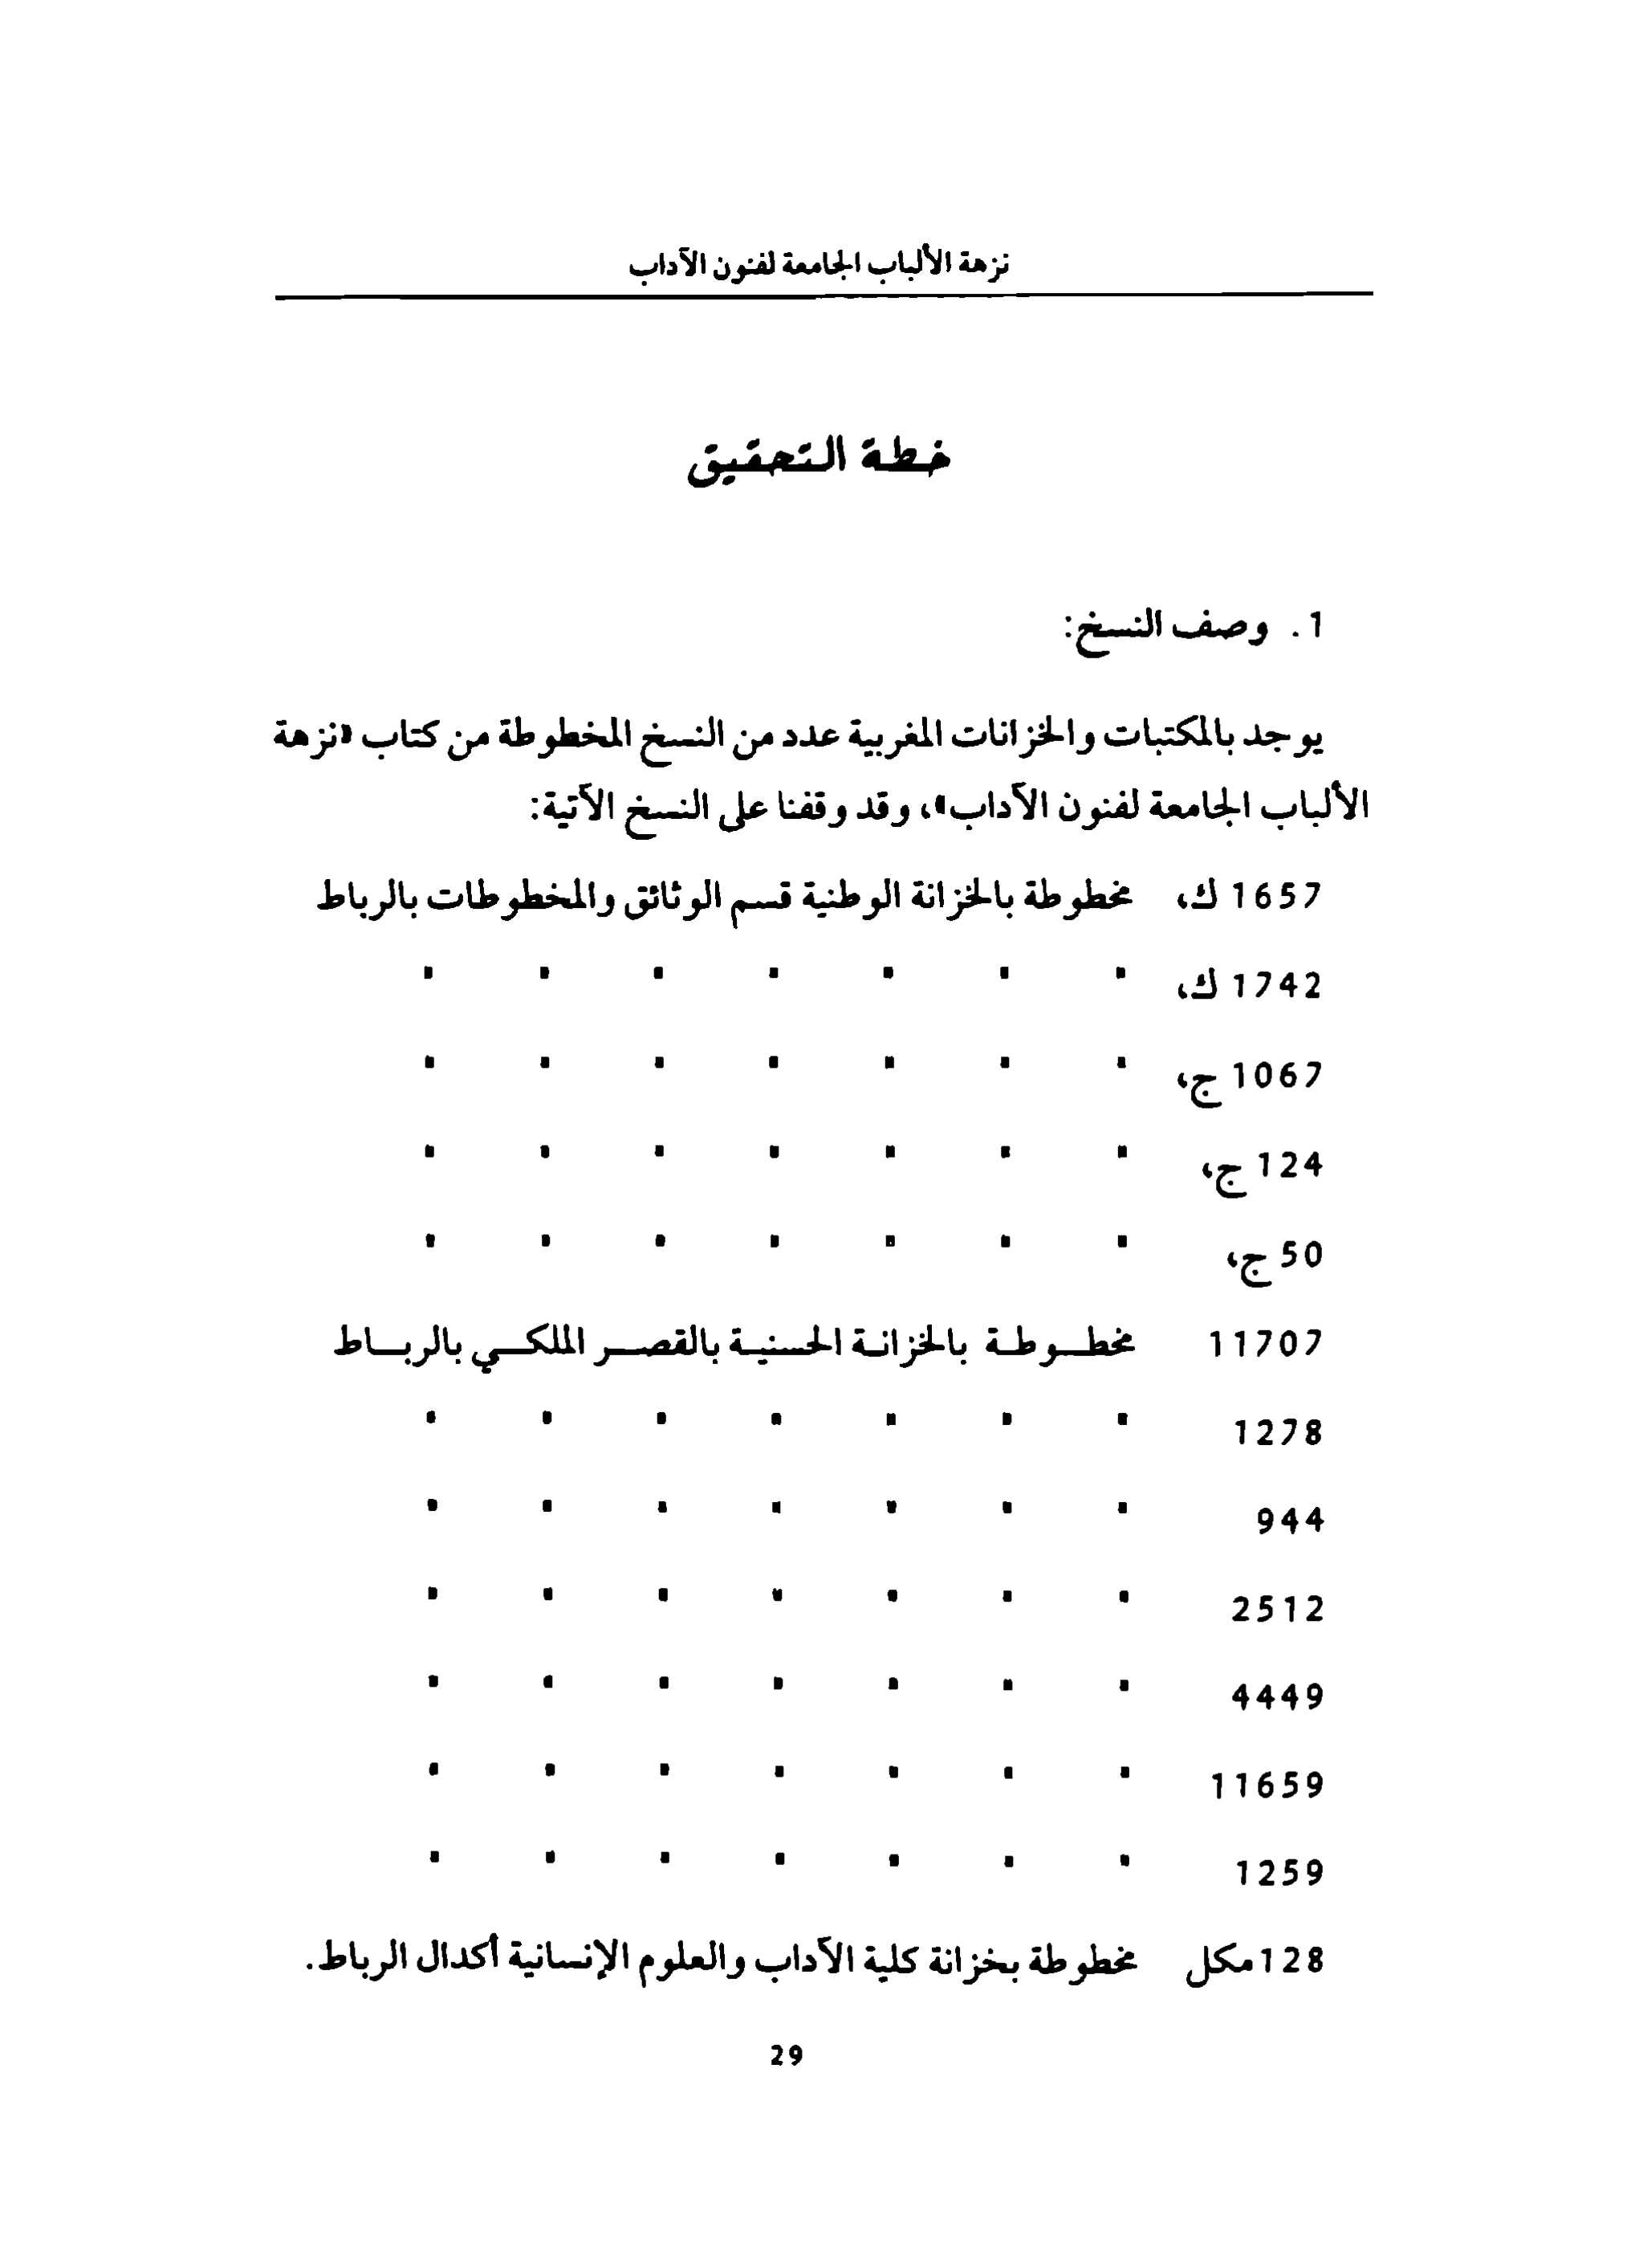 نزهة الألباب الجامعة لفنون الآداب
خطة التحقيق
1. وصف النسخ:
يوجد بالمكتبات والخزانات المغربية عدد من النسخ المخطوطة من كتاب «نزهة
الألباب الجامعة لفنون الآداب»، وقد وقفنا على النسخ الآتية:
1657 ك، مخطوطة بالخزانة الوطنية قسم الوثائق والمخطوطات بالرباط
1742 ك، " " " " " " "
1067 ج، " " " " " " "
124 ج، " " " " " " "
50 ج، " " " " " " "
11707 مخطـوطـة بالخزانـة الحسنيـة بالقصـر الملكـي بالربـاط
1278 " " " " " " "
944 " " " " " " "
2512 " " " " " " "
4449 " " " " " " "
11659 " " " " " " "
1259 " " " " " " "
128 مكل مخطوطة بخزانة كلية الآداب والعلوم الإنسانية أكدال الرباط.
29